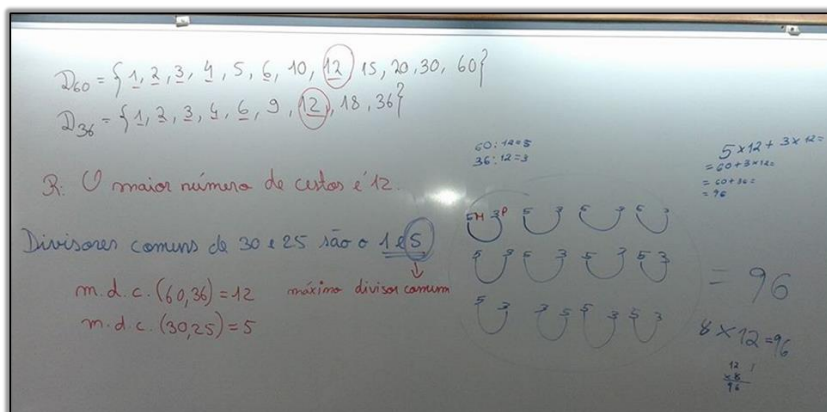 D60 = {1, 2, 3, 4, 5, 6, 10, 12, 15, 20, 30, 60}
D36 = {1, 2, 3, 4, 6, 9, 12, 18, 36}
R: O maior número de cestos é 12.
Divisores comuns de 30 e 25 são o 1 e 5
m.d.c. (60,36) = 12
máximo divisor comum
m.d.c. (30,25) = 5
60 : 12 = 5
36 : 12 = 3
5M 3P 5 3 5 3 5 3
5 3 5 3 5 3 5 3
5 3 3 5 5 3 5 3
5 × 12 + 3 × 12 =
= 60 + 3 × 12 =
= 60 + 36 =
= 96
= 96
8 × 12 = 96
12
× 8
96